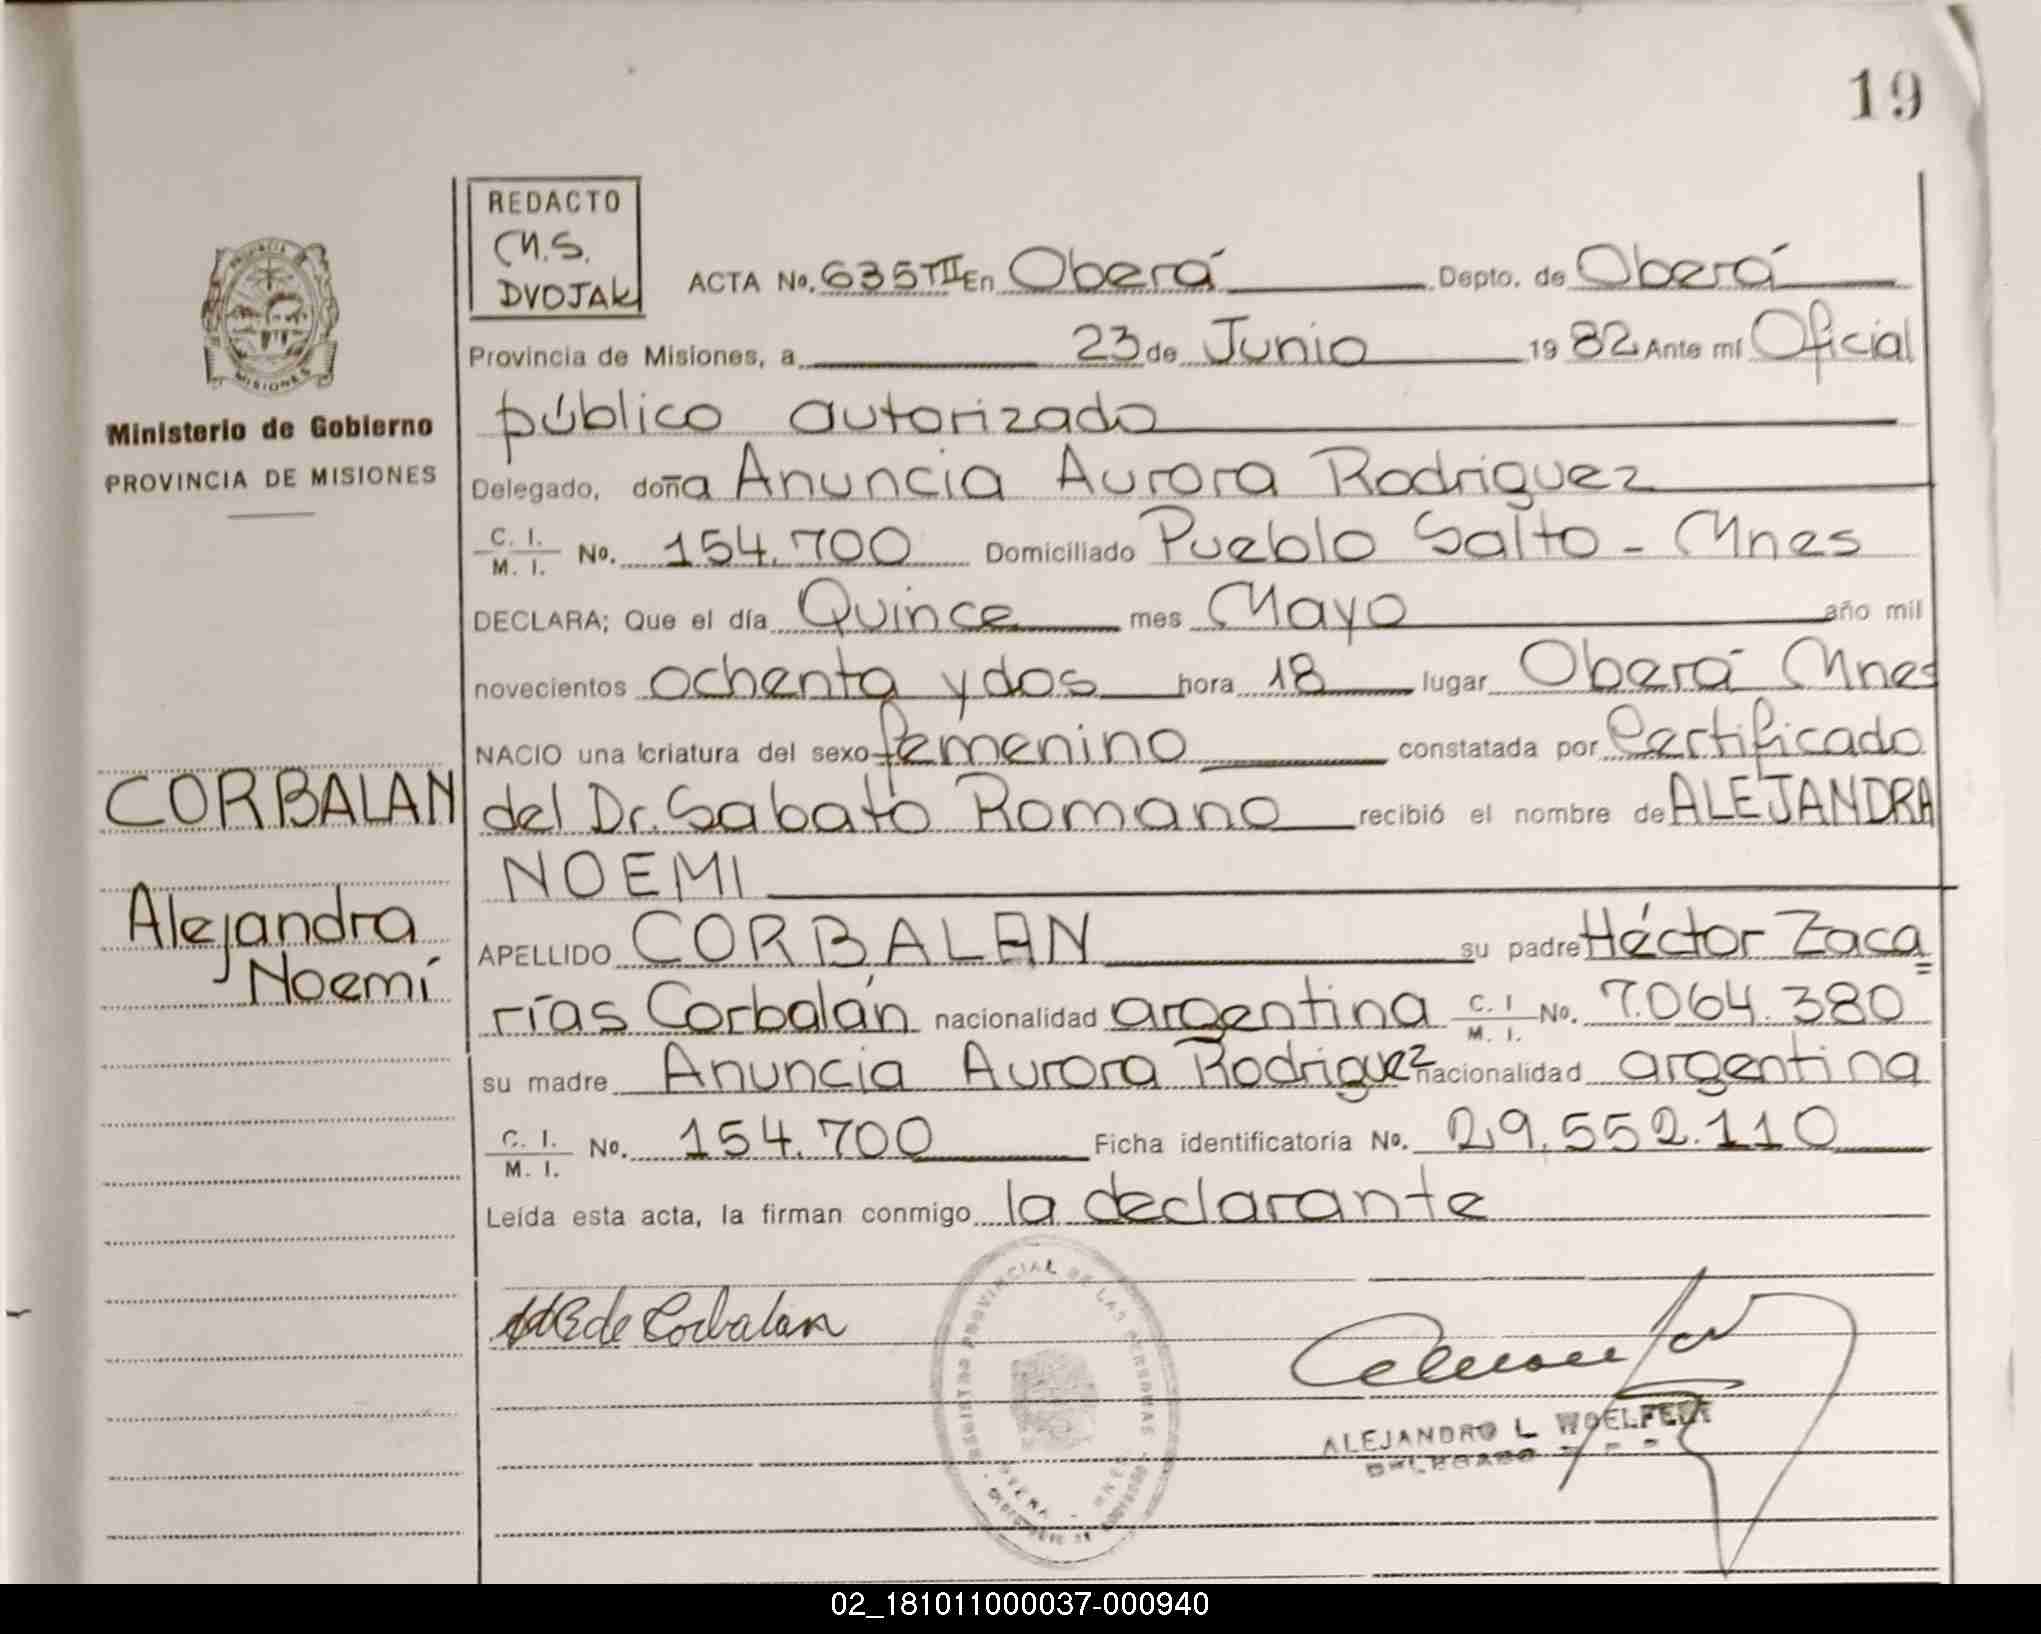 19
REDACTO
M.S.
DVOJAK
ACTA No. 635 TII En Oberá Depto. de Oberá
Provincia de Misiones, a 23 de Junio 19 82 Ante mí Oficial
público autorizado
Delegado, doña Anuncia Aurora Rodriguez
C. I. / M. I. No. 154.700 Domiciliado Pueblo Salto - Mnes
DECLARA; Que el día Quince mes Mayo año mil
novecientos ochenta y dos hora 18 lugar Oberá Mnes
NACIO una criatura del sexo femenino constatada por Certificado
del Dr. Sabato Romano recibió el nombre de ALEJANDRA
NOEMI
APELLIDO CORBALAN su padre Héctor Zaca=
rías Corbalán nacionalidad argentina C. I / M. I. No. 7.064.380
su madre Anuncia Aurora Rodriguez nacionalidad argentina
C. I. / M. I. No. 154.700 Ficha identificatoria No. 29.552.110
Leída esta acta, la firman conmigo la declarante
PROVINCIA DE
MISIONES
Ministerio de Gobierno
PROVINCIA DE MISIONES
CORBALAN
Alejandra
Noemí
de Corbalan
PROVINCIAL DE LAS PERSONAS
ALEJANDRO L WOELFERT
DELEGADO
02_181011000037-000940